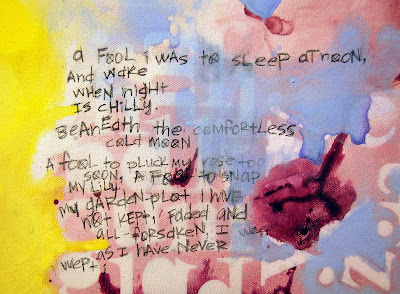 a FOOL i WAS to SLEEP ATNOON,
AND WAKE
WHEN NIGHT
IS CHILLY.
BEANEATH the COMFORTLESS
COLD MOON
A FOOL to PLUCK MY ROSE TOO
SOON, A FOOL TO SNAP
MY LILY.
MY GARDEN-PLOT I HAVE
NOT KEPT; FADED AND
ALL-FORSAKEN, I WEEP
AS I HAVE NEVER
WEPT;